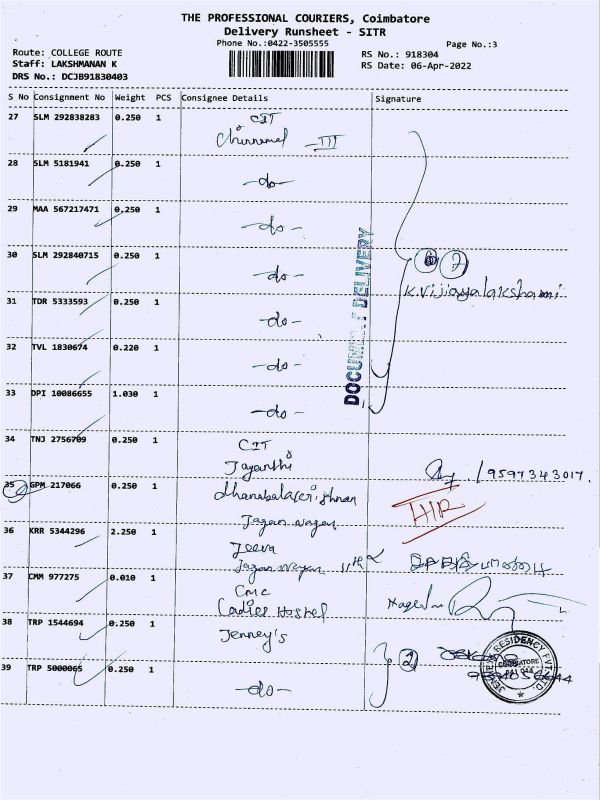 THE PROFESSIONAL COURIERS, Coimbatore
Delivery Runsheet - SITR
Phone No.:0422-3505555
Page No.:3
Route: COLLEGE ROUTE
Staff: LAKSHMANAN K
DRS No.: DCJB91830403
RS No.: 918304
RS Date: 06-Apr-2022
S No Consignment No Weight PCS Consignee Details Signature
27 SLM 292838283 0.250 1 CIT
III
28 SLM 5181941 0.250 1 -do-
29 MAA 567217471 0.250 1 -do-
30 SLM 292840715 0.250 1 -do-
K.Vijiayalakshami
31 TDR 5333593 0.250 1 -do-
32 TVL 1830674 0.220 1 -do-
33 DPI 10086655 1.030 1 -do-
DOCUMENT DELIVERY
34 TNJ 2756709 0.250 1 CIT
Jayanthi
/9597343017.
35 GPM 217066 0.250 1 dhanabalakrishnan
Jagan Nagar
36 KRR 5344296 2.250 1 Jeeva
Jagan Nagar 11th
37 CMM 977275 0.010 1 CMC
Ladies Hostel
38 TRP 1544694 0.250 1 Jenney's
39 TRP 5000065 0.250 1 -do-
2
RESIDENCY PVT. LTD.
COIMBATORE